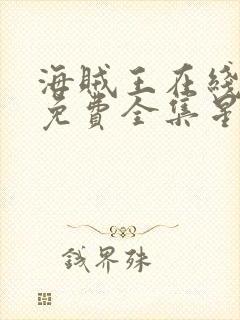 海賊王在綫
免費全集
界殊